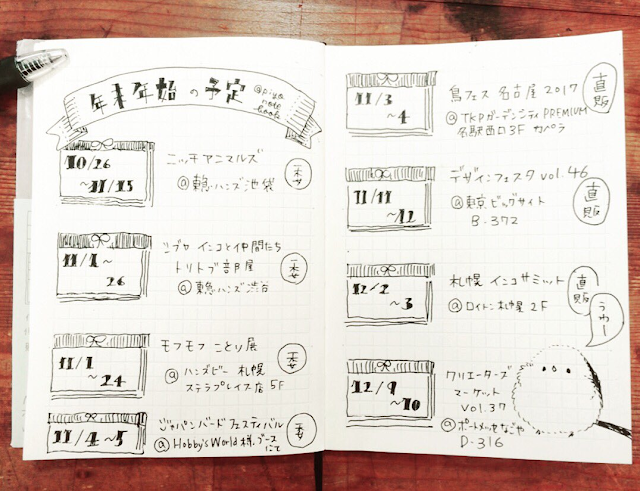 年末年始の予定
@piyo
note
book
10/26
~11/15
ニッチアニマルズ
@東急ハンズ池袋
委
11/1~
26
シブヤ インコと仲間たち
トリトブ部屋
@東急ハンズ渋谷
委
11/1
~24
モフモフ ことり展
@ハンズビー 札幌
ステラプレイス店 5F
委
11/4~5
ジャパンバードフェスティバル
@Hobby's World様ブース
にて
委
11/3
~4
鳥フェス 名古屋 2017
@TKPガーデンシティ PREMIUM
名駅西口 3F カペラ
直販
11/11
~12
デザインフェスタ vol.46
@東京ビッグサイト
B-372
直販
12/2
~3
札幌 インコサミット
@ロイトン札幌 2F
直販
うわー
12/9
~10
クリエーターズ
マーケット
vol.37
@ポートメッセなごや
D-316